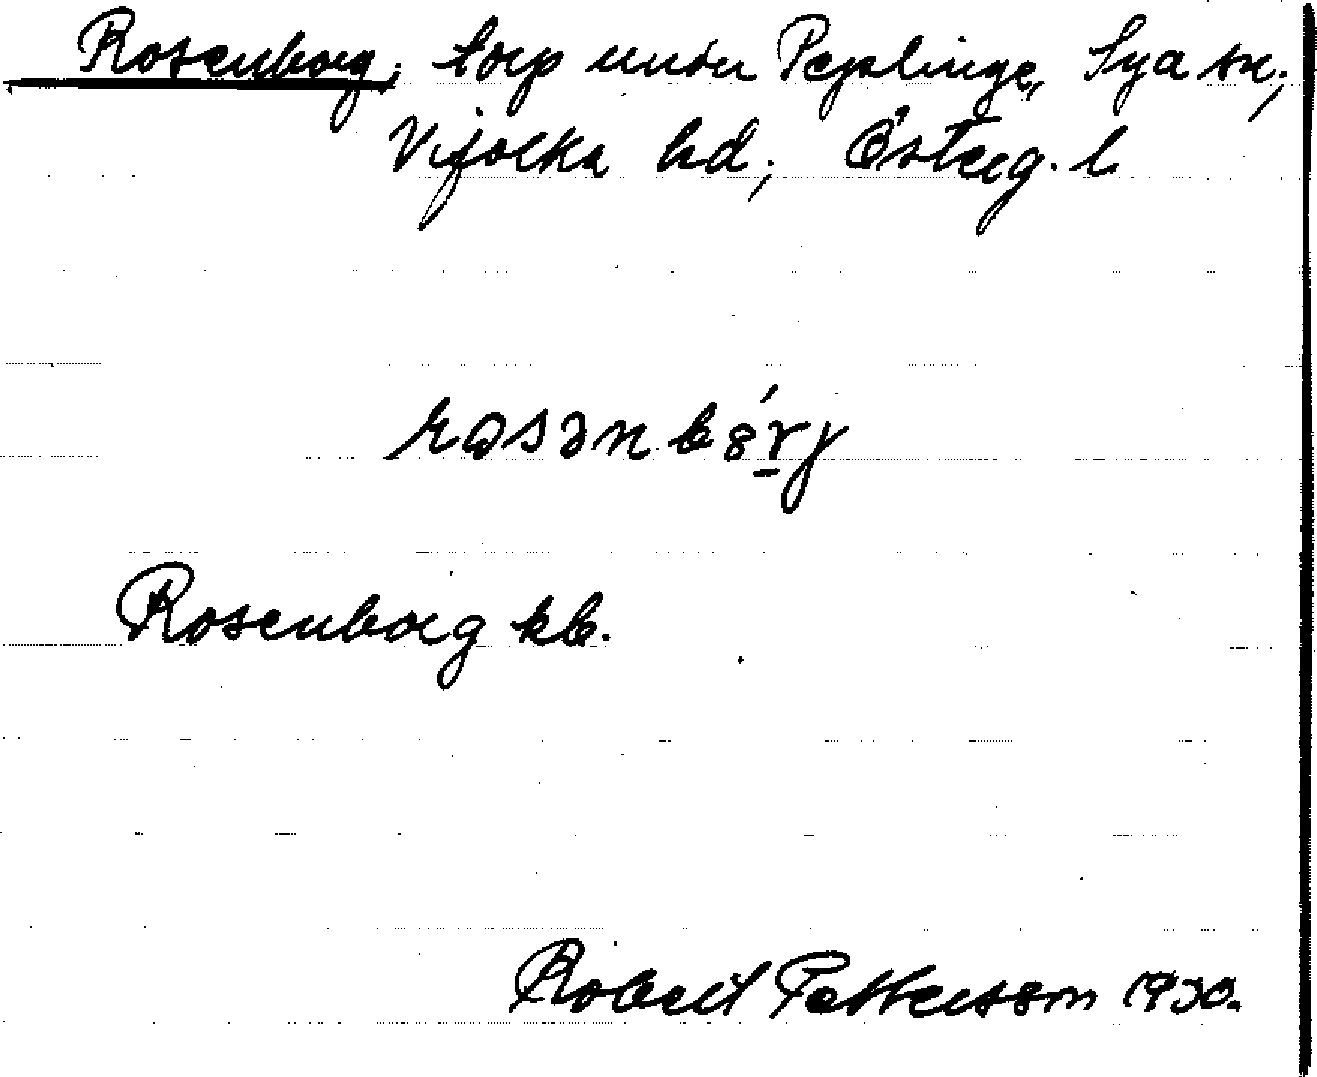 Rosenborg, torp under Pepplinge, Sya sn,
Vifolka hd, Österg. l.
rosənbórj
Rosenborg kb.
Robert Pettersson 1930.